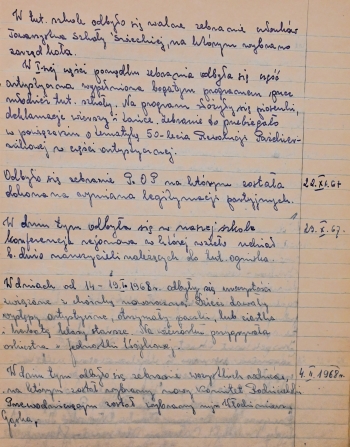 W tut. szkole odbyło się walne zebranie członków
Towarzystwa Szkoły Świeckiej, na którym wybrano
zarząd koła.
W I-szej części porządku zebrania odbyła się część
artystyczna wypełniona bogatym programem przez
młodzież tut. szkoły. Na program złożyły się piosenki,
deklamacje, wiersze i tańce. Zebranie to przebiegało
w powiązaniu z tematyką 50-lecia Rewolucji Październikowej
w części artystycznej.
Odbyło się zebranie P.O.P na którym została 22.XI.67
dokonana wymiana legitymacji partyjnych.
W dniu tym odbyła się w naszej szkole 29.X.67.
konferencja rejonowa w której wzięło udział
nauczycieli należących do tut. ogniska.
W dniach od 14 - 1968r. odbyły się uroczystości
związane z choinką noworoczną. Dzieci dawały
występy artystyczne, otrzymały paczki, lub ciastka
i herbatę klasy starsze. Na wieczorki przygrywała
orkiestra z Jednostki
W dniu tym odbyło się zebranie wszystkich rodziców, 4.II.1968r.
na którym został wybrany nowy Komitet Rodzicielski
Przewodniczącym został wybrany mjr Włodzimierz